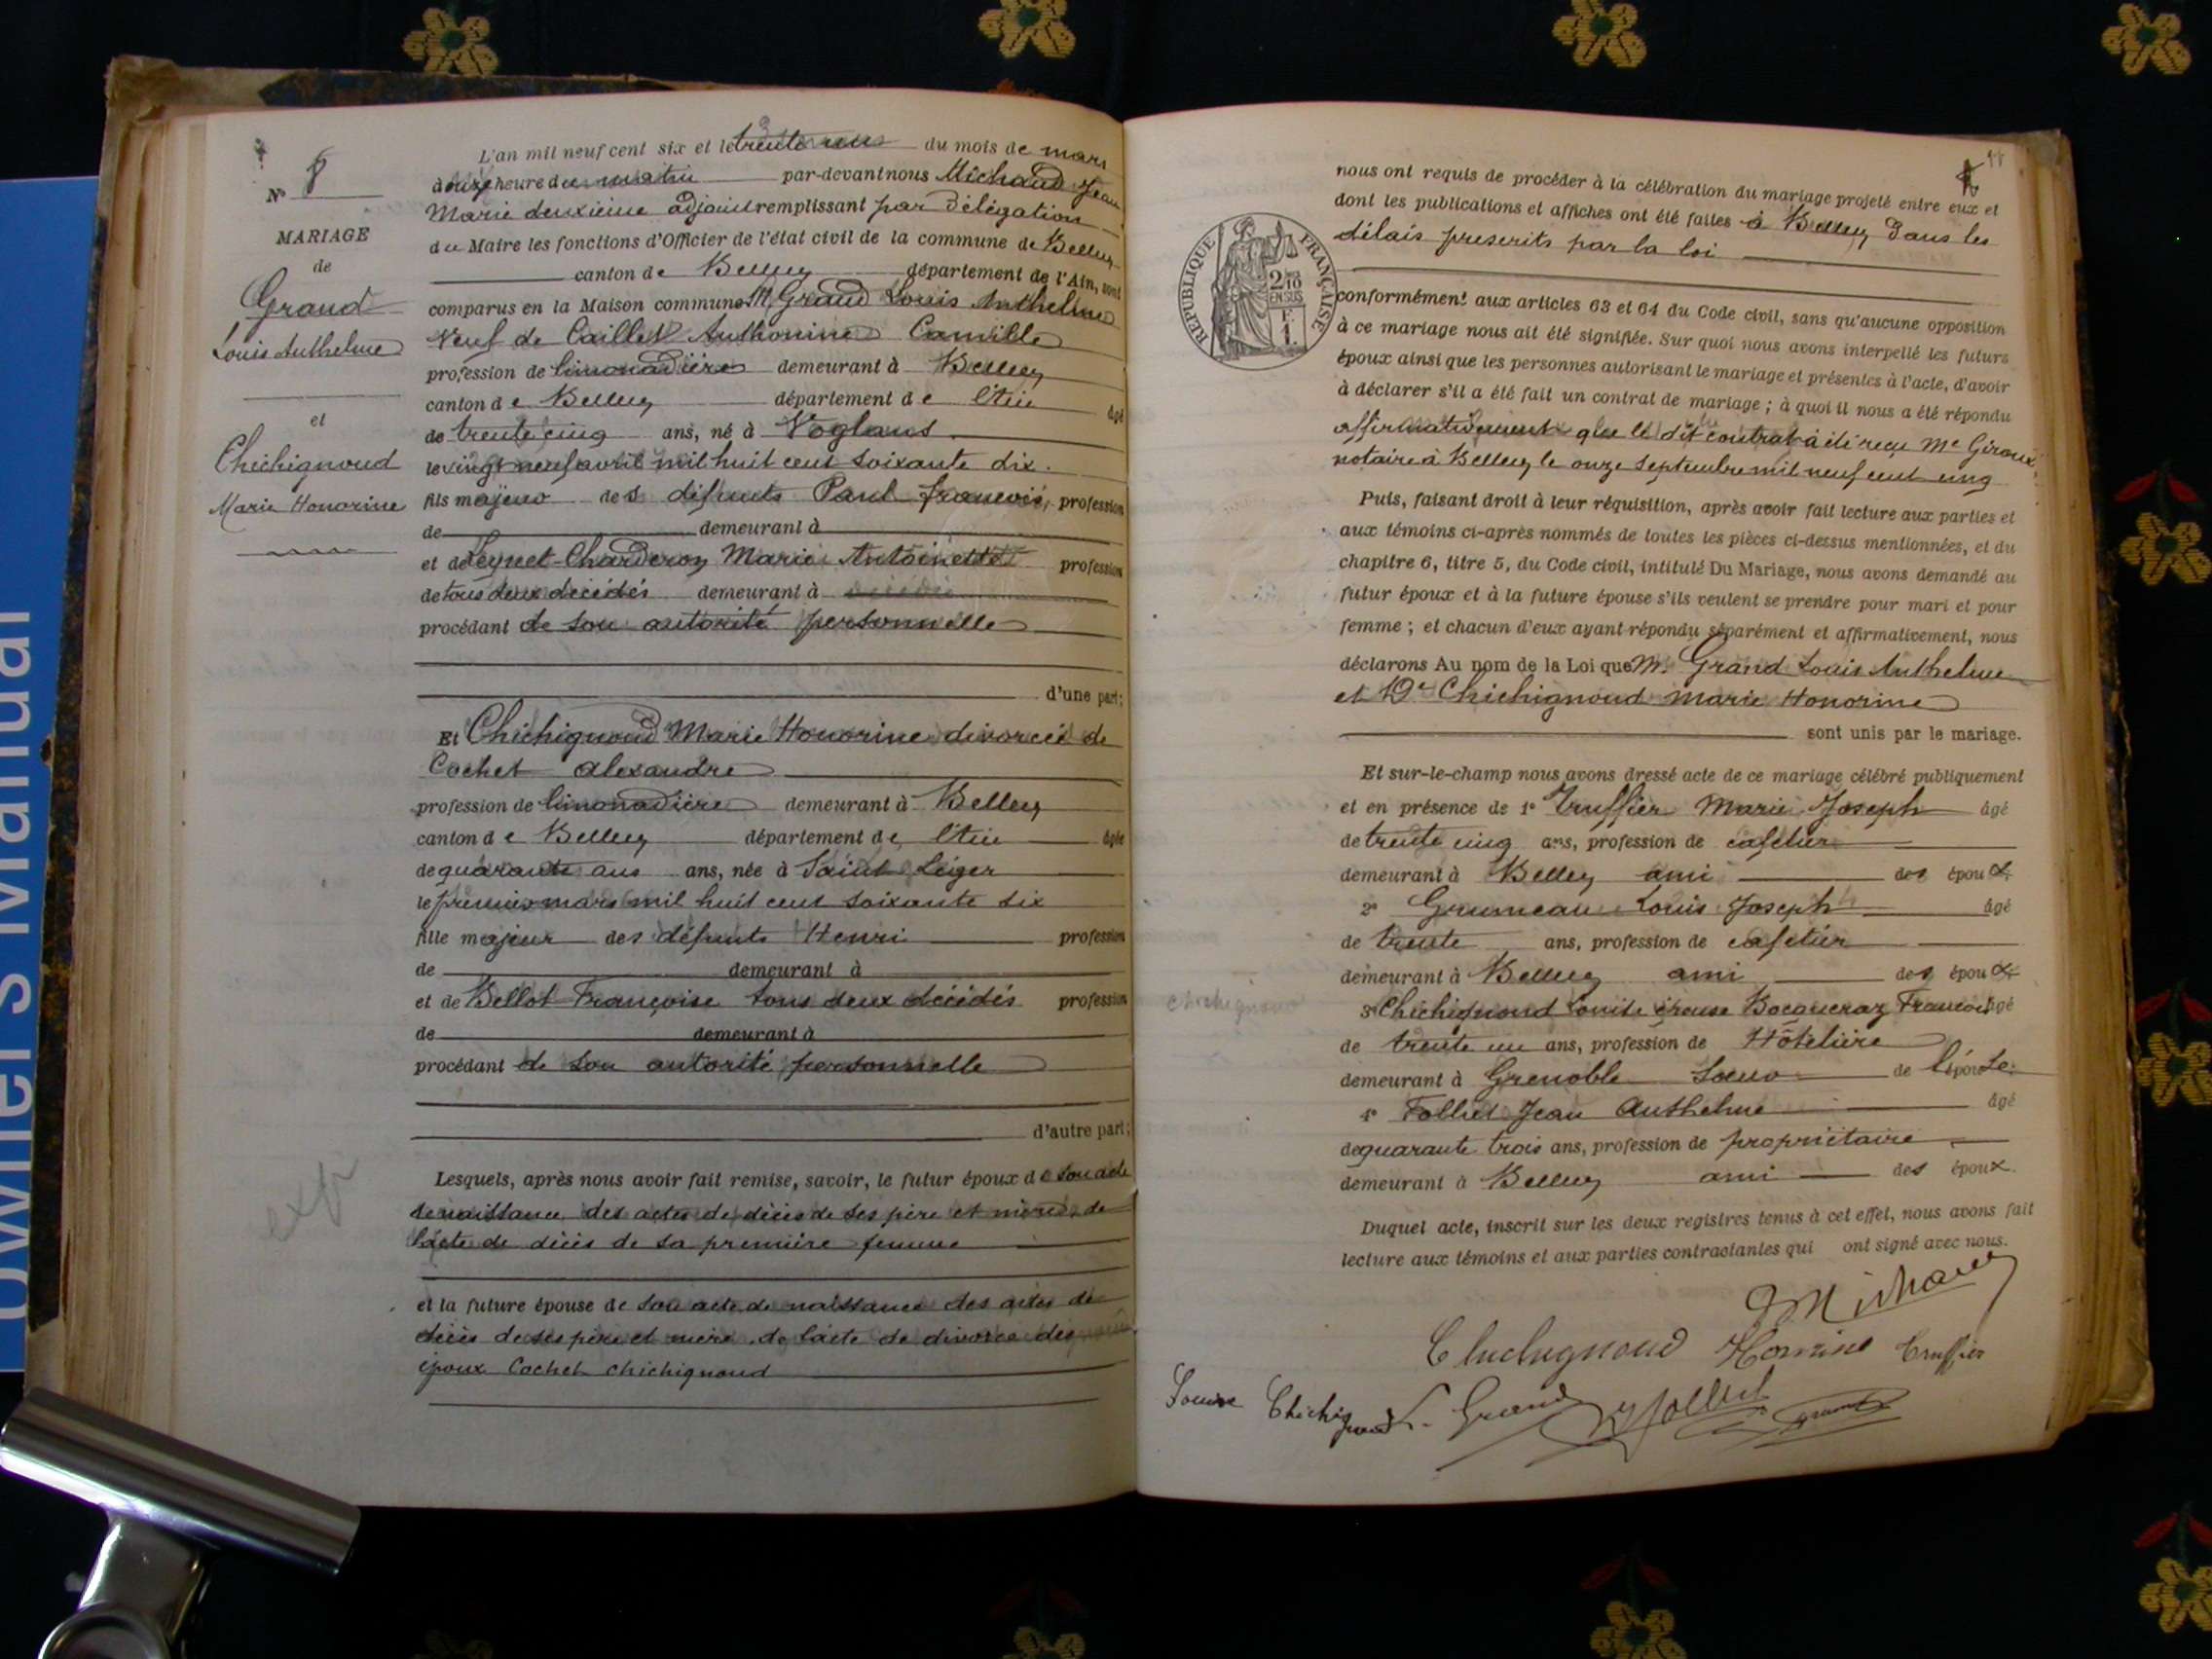 N° 8
MARIAGE
de
Grand
Louis Anthelme
et
Chichignoud
Marie Honorine
L'an mil neuf cent six et le trente un du mois de mars
à onze heure du matin par-devant nous Michaud Jean
Marie deuxième adjoint remplissant par délégation
du Maire les fonctions d'Officier de l'état civil de la commune de Belley
canton de Belley département de l'Ain, sont
comparus en la Maison commune M. Grand Louis Anthelme
Veuf de Caillet Anthonine Camille
profession de limonadière demeurant à Belley
canton de Belley département de l'Ain âgé
de trente cinq ans, né à Voglans
le vingt neuf avril mil huit cent soixante dix.
fils majeur des défunts Paul françois, profession
de demeurant à
et de Charderon Marie Antoinette profession
de tous deux décédés demeurant à
procédant de son autorité personnelle
d'une part;
Et Chichignoud Marie Honorine divorcée de
Cochet alexandre
profession de limonadière demeurant à Belley
canton de Belley département de l'Ain âgée
de quarante ans ans, née à Saint Léger
le premier mars mil huit cent soixante six
fille majeur des défunts Henri profession
de demeurant à
et de Bellot Françoise tous deux décédés profession
de demeurant à
procédant de son autorité personnelle
d'autre part;
Lesquels, après nous avoir fait remise, savoir, le futur époux de son acte
de naissance, des actes de décès de ses père et mère, de
l'acte de décès de sa première femme
et la future épouse de son acte de naissance des actes de
décès de ses père et mère, de l'acte de divorce des
époux Cochet chichignoud
nous ont requis de procéder à la célébration du mariage projeté entre eux et
dont les publications et affiches ont été faites à Belley dans les
délais prescrits par la loi
REPUBLIQUE FRANÇAISE
2/10
EN SUS
F.
1.
conformément aux articles 63 et 64 du Code civil, sans qu'aucune opposition
à ce mariage nous ait été signifiée. Sur quoi nous avons interpellé les futurs
époux ainsi que les personnes autorisant le mariage et présentes à l'acte, d'avoir
à déclarer s'il a été fait un contrat de mariage ; à quoi il nous a été répondu
affirmativement que le dit contrat à été reçu Me Giroux
notaire à Belley le onze septembre mil neuf cent cinq
Puis, faisant droit à leur réquisition, après avoir fait lecture aux parties et
aux témoins ci-après nommés de toutes les pièces ci-dessus mentionnées, et du
chapitre 6, titre 5, du Code civil, intitulé Du Mariage, nous avons demandé au
futur époux et à la future épouse s'ils veulent se prendre pour mari et pour
femme ; et chacun d'eux ayant répondu séparément et affirmativement, nous
déclarons Au nom de la Loi que M. Grand Louis Anthelme
et De Chichignoud Marie Honorine
sont unis par le mariage.
Et sur-le-champ nous avons dressé acte de ce mariage célébré publiquement
et en présence de 1° Truffier Marie Joseph âgé
de trente cinq ans, profession de cafetier
demeurant à Belley ami des époux
2° Grumeau Louis Joseph âgé
de trente ans, profession de cafetier
demeurant à Belley ami des époux
3° Chichignoud Louise épouse Bocqueraz François âgé
de trente un ans, profession de Hôtelière
demeurant à Grenoble Soeur de l'épouse
4° Folliet Jean Anthelme âgé
de quarante trois ans, profession de propriétaire
demeurant à Belley ami des époux.
Duquel acte, inscrit sur les deux registres tenus à cet effet, nous avons fait
lecture aux témoins et aux parties contractantes qui ont signé avec nous.
Michaud
Chichignoud Honorine Truffier
Louise Chichignoud L. Grand Folliet
Owner's Manual